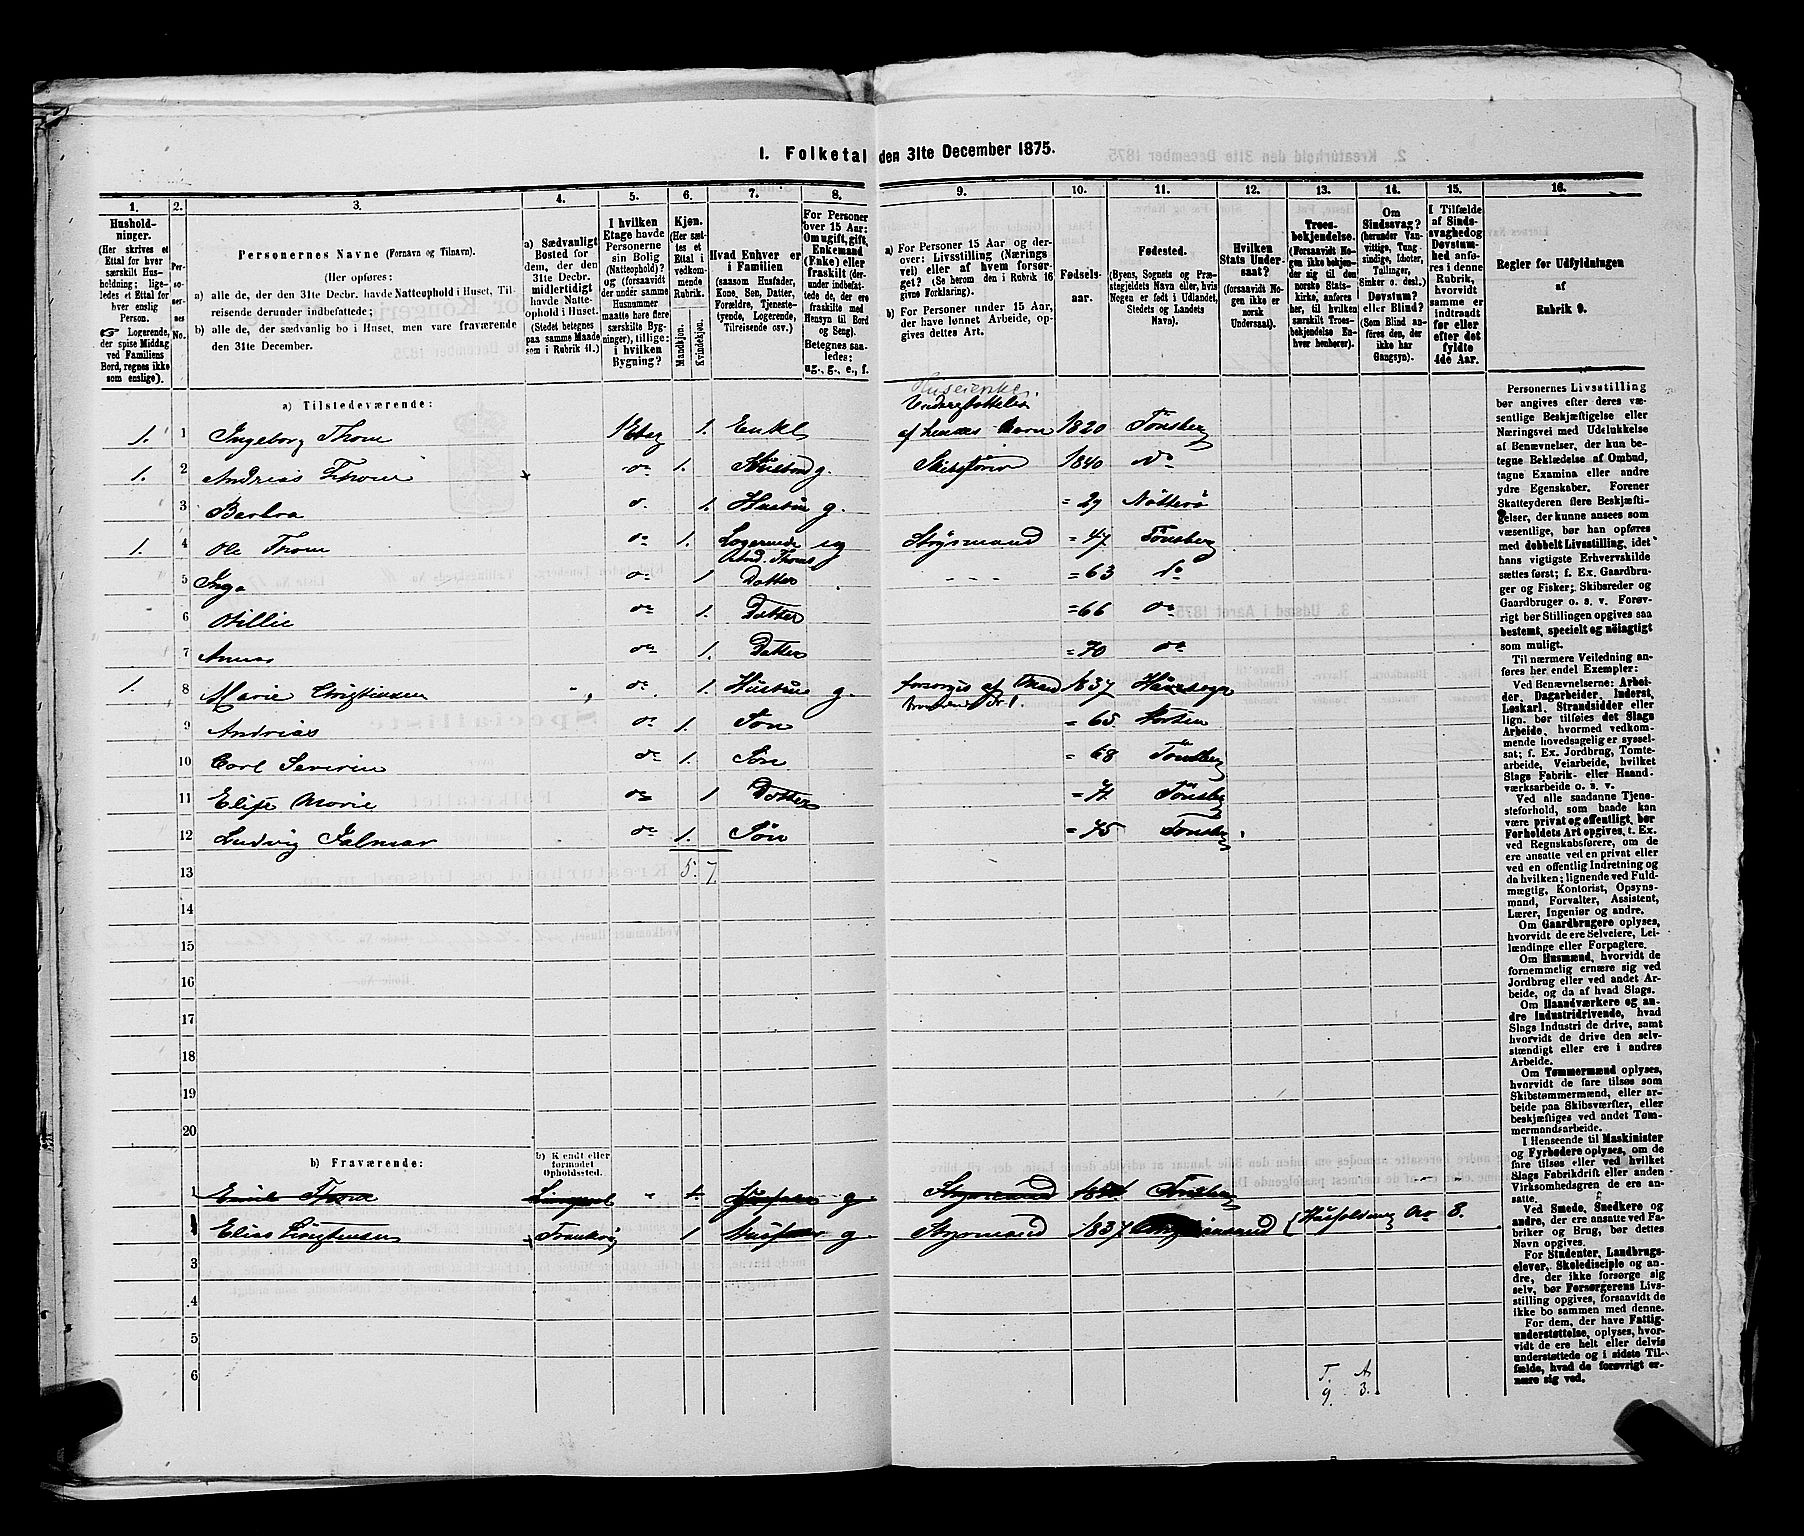 1. Folketal den 31te December 1875.
1. 2. 3. 4. 5. 6. 7. 8. 9. 10. 11. 12. 13. 14. 15. 16.
Husholdninger.
(Her skrives et
Ettal for hver
særskilt Husholdning;
ligeledes et Ettal for
hver enslig
Person.
Logerende,
der spise Middag
ved Familiens
Bord, regnes ikke
som enslige).
Personernes No.
Personernes Navne (Fornavn og Tilnavn).
(Her opføres:
a) alle de, der den 31te Decbr. havde Natteophold i Huset, Tilreisende
derunder indbefattede;
b) alle de, der sædvanlig bo i Huset, men vare fraværende
den 31te December.
a) Sædvanligt
Bosted for
dem, der den
31te Decbr.
midlertidigt
havde Natteophold
i Huset.
(Stedet betegnes
paa samme Maade
som i Rubrik 11.)
I hvilken
Etage havde
Personerne
sin Bolig
(Natteophold)?
og (forsaavidt
der under samme
Husnummer
maatte høre flere
særskilte Bygninger),
tillige:
i hvilken
Bygning?
Kjøn.
(Her sættes
et Ettal
i vedkommende
Rubrik.
Mandkjøn.
Kvindekjøn.
Hvad Enhver er
i Familien
(saasom Husfader,
Kone, Søn, Datter,
Forældre, Tjenestetyende,
Logerende,
Tilreisende osv.)
For Personer
over 15 Aar:
Om ugift, gift,
Enkemand
(Enke) eller
fraskilt (derunder
indbefattede
de, der ere
fraskilte med
Hensyn til Bord
og Seng).
Betegnes saaledes:
ug., g., e., f.
a) For Personer 15 Aar og derover:
Livsstilling (Næringsvei)
eller af hvem forsørget?
(Se herom den i Rubrik 16
givne Forklaring).
b) For Personer under 15 Aar,
der have lønnet Arbeide, opgives
dettes Art.
Fødselsaar.
Fødested.
(Byens, Sognets og Præstegjeldets
Navn eller, hvis
Nogen er født i Udlandet,
Stedets og Landets
Navn).
Hvilken
Stats Undersaat?
(forsaavidt Nogen
ikke er
norsk
Undersaat).
Troesbekjendelse.
(Forsaavidt Nogen
ikke bekjender
sig til den
norske Statskirke,
anføres
her, til hvilken
særskilt Troesbekjendelse
Enhver
henhører).
Om
Sindssvag?
(herunder Vanvittige,
Tungsindige,
Idioter,
Tullinger,
Sinker o. desl.)
Døvstum?
eller Blind?
(Som Blind anføres
den, der
ikke har
Gangsyn).
I Tilfælde
af Sindssvaghed
og
Døvstumhed
anføres
i denne
Rubrik,
hvorvidt
samme er
indtraadt
før eller
efter det
fyldte
4de Aar.
Regler for Udfyldningen
af
Rubrik 9.
a) Tilstedeværende:
Huseierske
Understøttelse
1. 1 Ingeborg Thom 1 Etag 1. Enke af hendes Børn 1820 Tønsberg
1. 2 Andreas Thom do 1. Husbond g. Skibsfører 1840 do
3 Barbra do 1. Hustru g. = 29 Nøtterø
1. 4 Ole Thom do 1. Logerende ug Styrmand = 47 Tønsberg
5 Inga do 1. Datter = 63 do
6 do 1. Datter = 66 do
7 Anna do 1. Datter = 70 do
1. 8 Marie Christiansen do 1. Hustru g. forsørges af Mand 1837
9 Andreas do 1. Søn = 65 Horten
10 Carl Severin do 1. Søn = 68 Tønsberg
11 Elise Marie do 1 Datter = 71 Tønsberg
12 Ludvig Jalmar do 1. Søn = 75 Tønsberg
13 5. 7
14
15
16
17
18
19
20
b) Fraværende:
b) Kendt eller
formodet
Opholdssted.
1 Thom g. Styrmand Tønsberg
Elias Christensen Frankrig 1 Husfader g. Styrmand 1837 Husholdning No 8.
3
4
5
6
T. A
9. 3.
Personernes Livsstilling
bør angives efter deres væsentlige
Beskjæftigelse eller
Næringsvei med Udelukkelse
af Benævnelser, der kun betegne
Beklædelse af Ombud,
tagne Examina eller andre
ydre Egenskaber. Forener
Skatteyderen flere Beskjæftigelser,
der kunne ansees som
væsentlige, bør han opføres
med dobbelt Livsstilling, idet
hans vigtigste Erhvervskilde
sættes først; f. Ex. Gaardbruger
og Fisker; Skibsreder og
Gaardbruger o. s. v. Forøvrigt
bør Stillingen opgives saa
bestemt, specielt og nøiagtigt
som muligt.
Til nærmere Veiledning anføres
her endel Exempler:
Ved Benævnelserne: Arbeider,
Dagarbeider, Inderst,
Løskarl, Strandsidder eller
lign. bør tilføies det Slags
Arbeide, hvormed vedkommende
hovedsagelig er sysselsat;
f. Ex. Jordbrug, Tomtearbeide,
Veiarbeide, hvilket
Slags Fabrik- eller Haandværksarbeide
o. s. v.
Ved alle saadanne Tjenesteforhold,
som baade kan
være privat og offentligt, bør
Forholdets Art opgives, t. Ex.
ved Regnskabsførere, om de
ere ansatte ved en privat eller
ved en offentlig Indretning og
da hvilken; lignende ved Fuldmægtig,
Kontorist, Opsynsmand,
Forvalter, Assistent,
Lærer, Ingeniør og andre.
Om Gaardbrugere oplyses,
hvorvidt de ere Selveiere, Leilændinge
eller Forpagtere.
Om Husmænd, hvorvidt de
fornemmelig ernære sig ved
Jordbrug eller ved andet Arbeide,
og da af hvad Slags.
Om Haandværkere og andre
Industridrivende, hvad
Slags Industri de drive, samt
hvorvidt de drive den selvstændigt
eller ere i andres
Arbeide.
Om Tømmermænd oplyses,
hvorvidt de fare tilsøs som
Skibstømmermænd, eller arbeide
paa Skibsværfter, eller
beskjæftiges ved andet Tømmermandsarbeide.
I Henseende til Maskinister
og Fyrbødere oplyses, om de
fare tilsøs eller ved hvilket
Slags Fabrikdrift eller anden
Virksomhedsgren de ere ansatte.
Ved Smede, Snedkere og
andre, der ere ansatte ved Fabriker
og Brug, bør dettes
Navn opgives.
For Studenter, Landbrugselever,
Skoledisciple og andre,
der ikke forsørge sig
selv, bør Forsørgerens Livsstilling
opgives, forsaavidt de
ikke bo sammen med denne.
For dem, der have Fattigunderstøttelse,
oplyses, hvorvidt
de ere helt eller delvis
understøttede og i sidste Tilfælde,
hvad de forøvrigt ernære
sig ved.